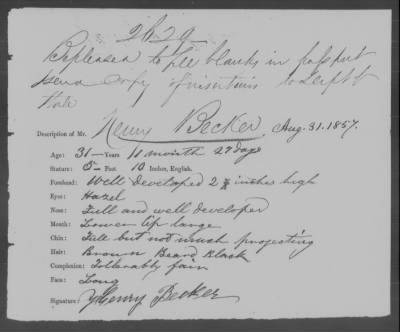 Be pleased to fill blanks in passport
Send Copy of insertions to Dept of
State
Description of Mr. Henry Becker Aug. 31. 1857.
Age: 31 — Years 11 month 27 days
Stature: 5 - Feet 10 Inches, English.
Forehead: Well developed 2 ⅜ inches high
Eyes: Hazel
Nose: Full and well developed
Mouth: Lower lip large
Chin: Full but not much projecting
Hair: Brown Beard Black
Complexion: Tollerably fair
Face: Long
Signature: Henry Becker